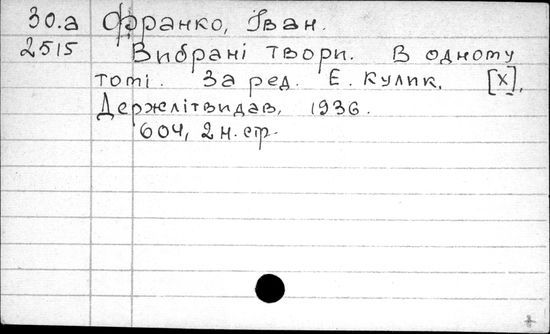 30.а Франко, Іван.
2515 Вибрані твори. В одному
томі. За ред. Е. Кулик. [Х],
Держлітвидав, 1936.
604, 2 н. стр.